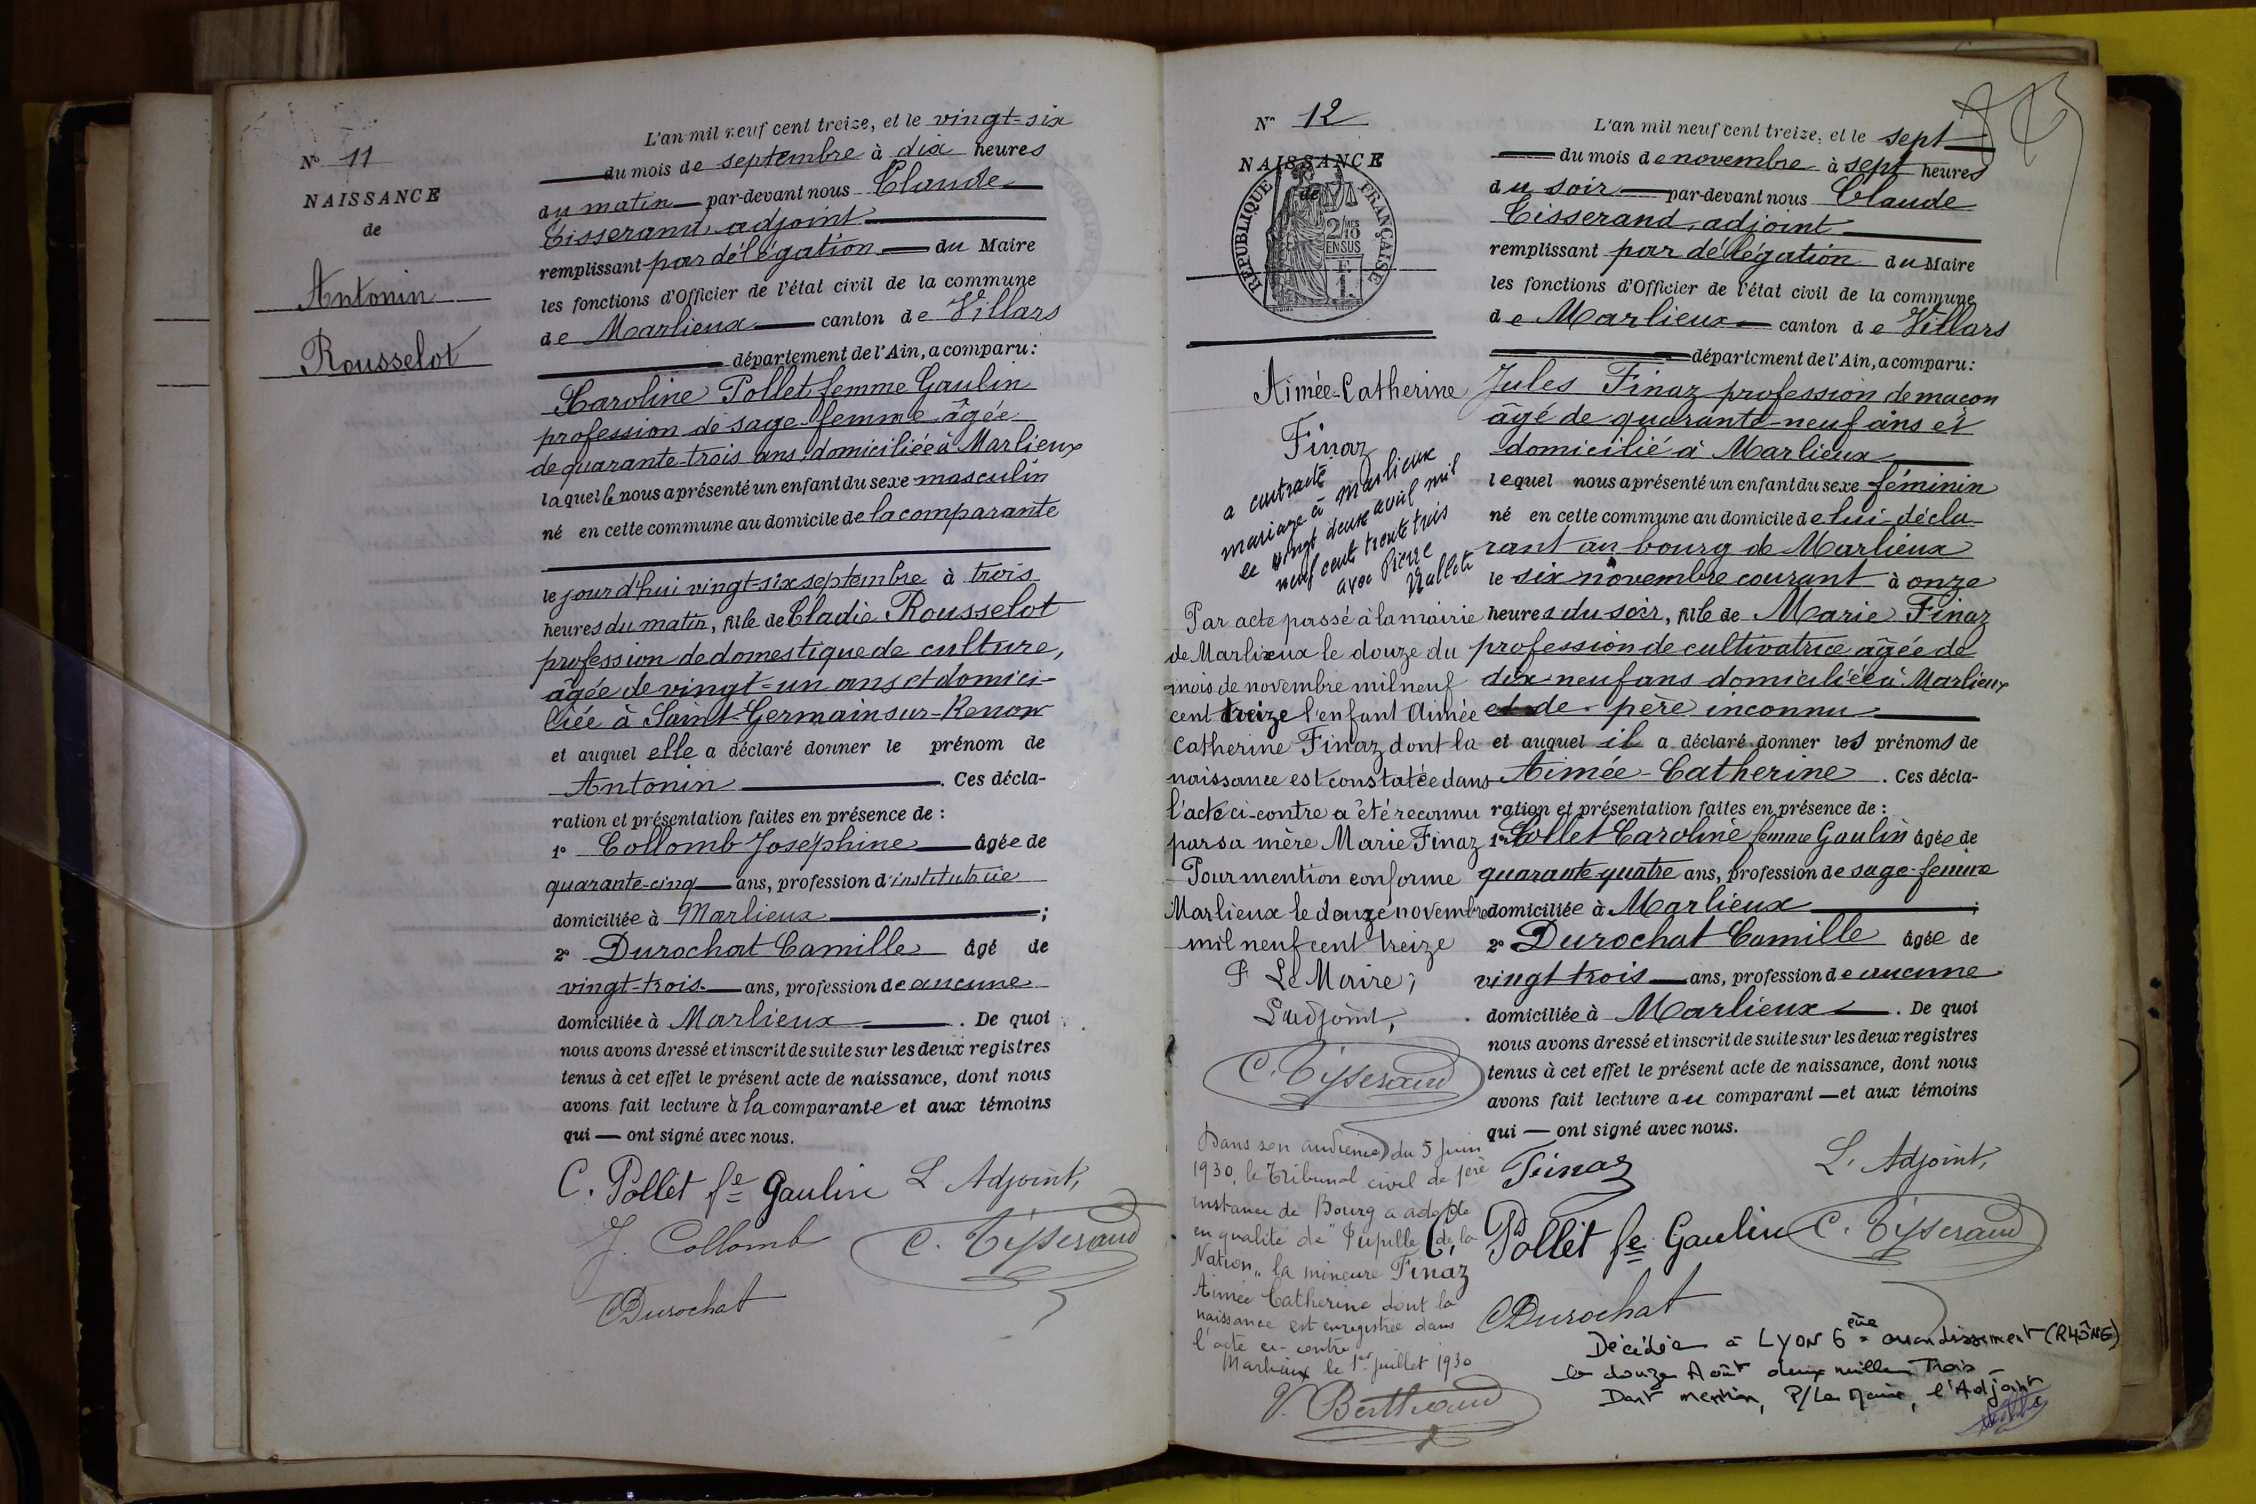 N° 11
NAISSANCE
de
Antonin
Rousselot
L'an mil neuf cent treize, et le vingt=six
du mois de septembre à dix heures
du matin par-devant nous Claude
Tisserand, adjoint
remplissant par délégation du Maire
les fonctions d'Officier de l'état civil de la commune
de Marlieux canton de Villars
département de l'Ain, a comparu:
Caroline Pollet femme Gaulin
profession de sage-femme âgée
de quarante-trois ans, domiciliée à Marlieux
laquelle nous a présenté un enfant du sexe masculin
né en cette commune au domicile de la comparante
le jourd'hui vingt=six septembre à trois
heures du matin, fils de Cladie Rousselot
profession de domestique de culture,
âgée de vingt=un ans et domici-
liée à Saint-Germain sur-Renon
et auquel elle a déclaré donner le prénom de
Antonin. Ces décla-
ration et présentation faites en présence de :
1° Collomb Joséphine âgée de
quarante-cinq ans, profession d'institutrice
domiciliée à Marlieux ;
2° Durochat Camille âgé de
vingt-trois ans, profession de aucune
domiciliée à Marlieux. De quoi
nous avons dressé et inscrit de suite sur les deux registres
tenus à cet effet le présent acte de naissance, dont nous
avons fait lecture à la comparante et aux témoins
qui — ont signé avec nous.
C. Pollet fe Gaulin L'Adjoint,
J. Collomb C. Tisserand
C Durochat
N° 12
NAISSANCE
de
RÉPUBLIQUE FRANÇAISE
2/10 EN SUS
Aimée-Catherine
Finaz
a contracté
mariage à Marlieux
le vingt deux avril mil
neuf cent trente trois
avec Pierre
Par acte passé à la mairie
de Marlieux le douze du
mois de novembre mil neuf
cent treize l'enfant Aimée
Catherine Finaz dont la
naissance est constatée dans
l'acte ci-contre a été reconnu
par sa mère Marie Finaz
Pour mention conforme
Marlieux le douze novembre
mil neuf cent treize
P Le Maire,
L'adjoint,
C. Tisserand
Dans son audience du 5 Juin
1930, le Tribunal civil de 1ère
instance de Bourg a adopté
en qualité de "Pupille de la
Nation" la mineure Finaz
Aimée Catherine dont la
naissance est enregistrée dans
l'acte ci-contre
Marlieux le 1er juillet 1930
V. Berthaud
L'an mil neuf cent treize, et le sept
du mois de novembre à sept heures
du soir par-devant nous Claude
Tisserand, adjoint
remplissant par délégation du Maire
les fonctions d'Officier de l'état civil de la commune
de Marlieux canton de Villars
département de l'Ain, a comparu:
Jules Finaz profession de maçon
âgé de quarante-neuf ans et
domicilié à Marlieux
lequel nous a présenté un enfant du sexe féminin
né en cette commune au domicile de lui-décla
rant au bourg de Marlieux
le six novembre courant à onze
heures du soir, fille de Marie Finaz
profession de cultivatrice âgée de
dix neuf ans domiciliée à Marlieux
et de père inconnu
et auquel il a déclaré donner les prénoms de
Aimée-Catherine. Ces décla-
ration et présentation faites en présence de :
1° Pollet Caroline femme Gaulin âgée de
quarante quatre ans, profession de sage-femme
domiciliée à Marlieux ;
2° Durochat Camille âgée de
vingt trois ans, profession de aucune
domiciliée à Marlieux. De quoi
nous avons dressé et inscrit de suite sur les deux registres
tenus à cet effet le présent acte de naissance, dont nous
avons fait lecture au comparant — et aux témoins
qui — ont signé avec nous.
Finaz L'Adjoint,
C. Pollet fe Gaulin C. Tisserand
C Durochat
Décédée à LYON 6ème arrondissement (RHÔNE)
le douze Août deux mille Trois -
Dont mention, P/Le Maire, l'Adjoint